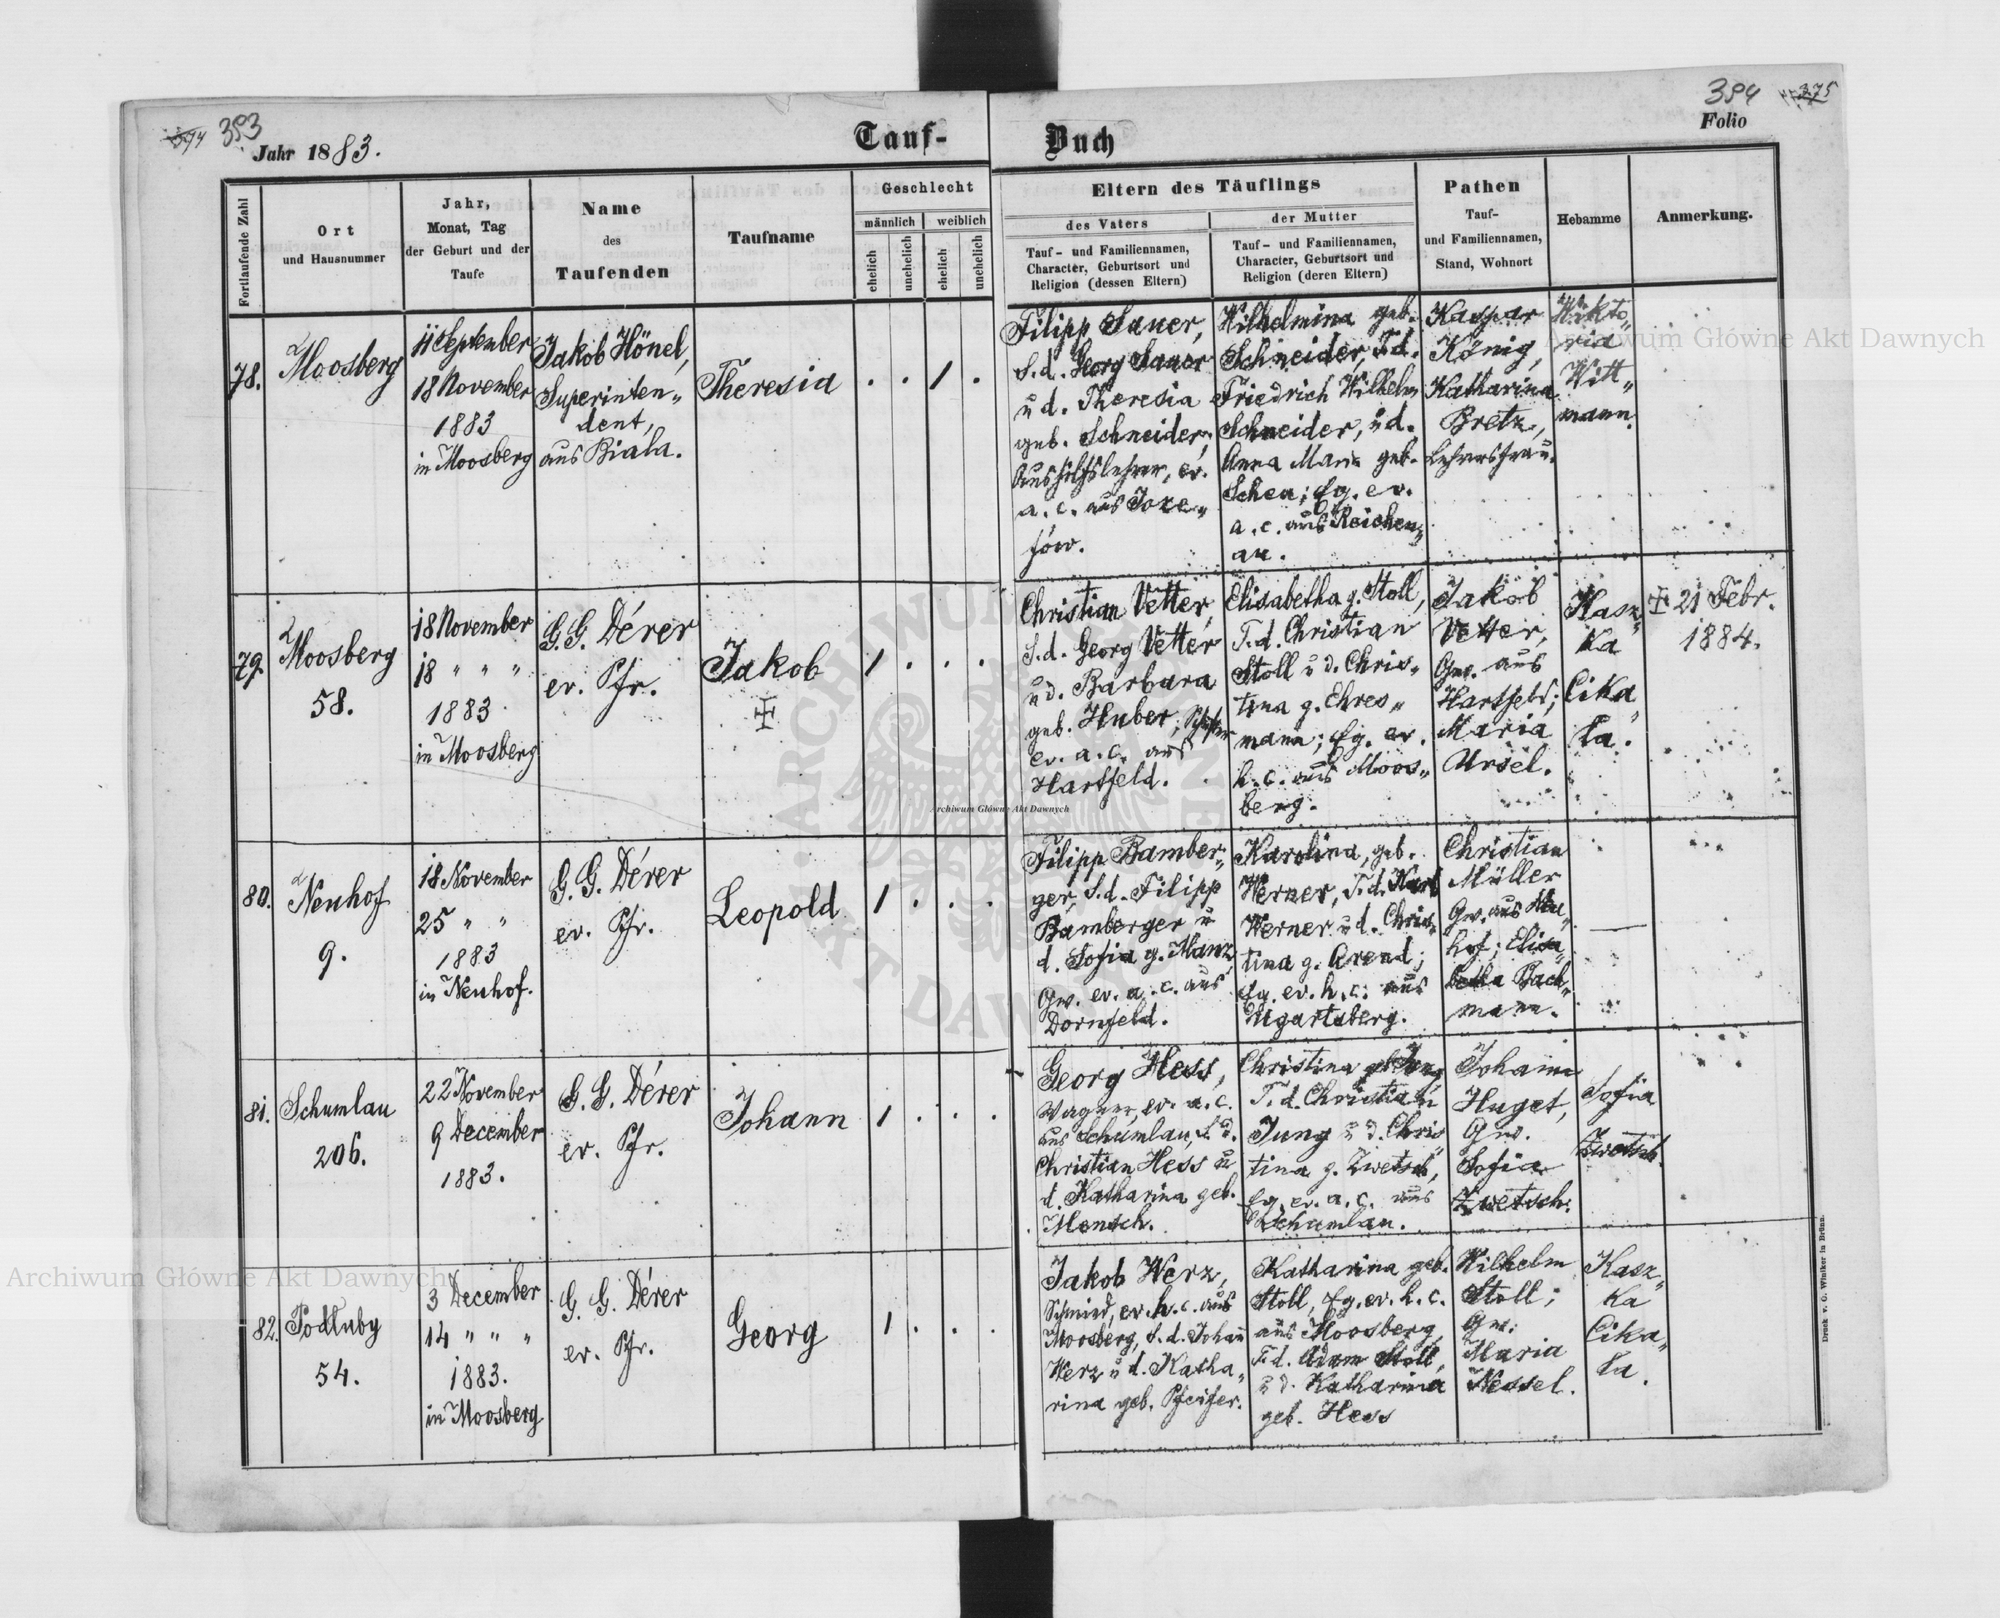 383
Jahr 1883.
Tauf-
Buch
394
375
Folio
Fortlaufende Zahl
Ort
und Hausnummer
Jahr,
Monat, Tag
der Geburt und der
Taufe
Name
des
Taufenden
Taufname
Geschlecht
männlich
weiblich
ehelich
unehelich
ehelich
unehelich
Eltern des Täuflings
des Vaters
Tauf- und Familiennamen,
Character, Geburtsort und
Religion (dessen Eltern)
der Mutter
Tauf- und Familiennamen,
Character, Geburtsort und
Religion (deren Eltern)
Pathen
Tauf-
und Familiennamen,
Stand, Wohnort
Hebamme
Anmerkung.
78.
Moosberg
11 September
18 November
1883
in Moosberg
Jakob Hönel,
Superinten„
dent,
aus Biala.
Theresia
. . 1 .
Filipp Sauer,
S.d. Georg Sauer
u d. Theresia
geb. Schneider,
Aushilfslehrer, ev.
a. c. aus Joze„
fów.
Wilhelmina geb.
Schneider, T.d.
Friedrich Wilhelm
Schneider, u d.
Anna Maria geb.
Schea; Eg. ev.
a. c. aus Reichen„
au.
Kaspar
König,
Katharina
Bretz,
Lehrersfrau.
Wikto„
ria
Witt„
mann.
79.
Moosberg
58.
18 November
18 „ „ „
1883
in Moosberg
G.G. Dérer
ev. Pfr.
Jakob
1 . . .
Christian Vetter,
S.d. Georg Vetter
u d. Barbara
geb. Huber;
ev. a. c. aus
Hartfeld.
Elisabetha g. Stoll,
T.d. Christian
Stoll u d. Chris„
tina g. Ehres„
mann; Eg. ev.
h. c. aus Moos„
berg.
Jakob
Vetter,
Gw. aus
Hartfeld;
Maria
Ursel.
Kasz„
ka
Cika„
ła.
21 Febr.
1884.
80.
Neuhof
9.
18 November
25 „ „
1883
in Neuhof.
G. G. Dérer
ev. Pfr.
Leopold
1 . . .
Filipp Bamber„
ger, S.d. Filipp
Bamberger u
d. Sofia g. Manz
Gw. ev. a. c. aus
Dornfeld.
Karolina, geb.
Werner, T.d. Karl
Werner u d. Chris„
tina g. Arend;
Eg. ev. h. c. aus
Ugartsberg.
Christian
Müller
Gw. aus Neu„
hof; Elisa„
betha Bach„
mann.
81.
Schumlau
206.
22 November
9 December
1883.
G. G. Dérer
ev. Pfr.
Johann
1 . . .
Georg Hess,
Wagner, ev. a. c.
aus Schumlau, S. d.
Christian Hess u
d. Katharina geb.
Mensch.
Christina geb. Jung
T. d. Christian
Jung u d. Chris„
tina g. Zwetsch,
Eg. ev. a. c. aus
Schumlau.
Johann
Huget,
Gw.
Sofia
Zwetsch.
Sofia
Zwetsch.
82.
Podłuby
54.
3 December
14 „ „ „
1883.
in Moosberg
G. G. Dérer
ev. Pfr.
Georg
1 . . .
Jakob Werz,
Schmied, ev. h. c. aus
Moosberg, S. d. Johann
Werz u d. Katha„
rina geb. Pfeifer.
Katharina geb.
Stoll, Eg. ev. h. c.
aus Moosberg,
T. d. Adam Stoll,
u d. Katharina
geb. Hess
Wilhelm
Stoll;
Gw.
Maria
Nessel.
Kasz„
ka
Cika„
ła.
Druck v. G. Winiker in Brünn.
Archiwum Główne Akt Dawnych
Archiwum Główne Akt Dawnych
Archiwum Główne Akt Dawnych